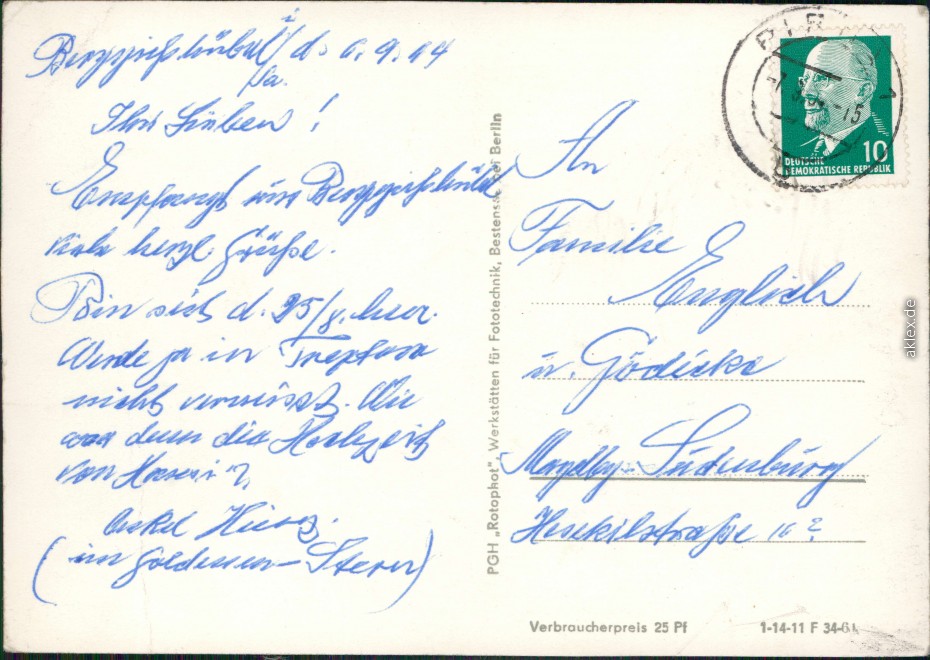 Berggießhübel i/
Sa. d. 6. 9. 64
Ihr Lieben!
Empfangt aus Berggießhübel
viele herzl. Grüße.
Bin seit d. 25/8. hier.
Werde ja in Treptow
nicht vermisst. Wie
war denn die Hochzeit
von
Onkel
(im goldenen Stern)
An
Familie
Englich
u. Gödicke
Magdbg-Sudenburg
Hesekielstraße 16?
PGH „Rotophot", Werkstätten für Fototechnik, Bestensee bei Berlin
DEUTSCHE
DEMOKRATISCHE REPUBLIK
10
Verbraucherpreis 25 Pf
1-14-11 F 34-61
aklex.de